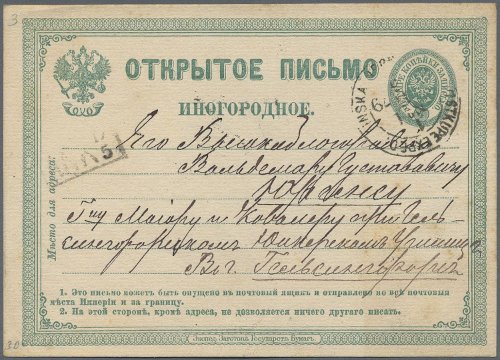 3
ОТКРЫТОЕ ПИСЬМО
ИНОГОРОДНОЕ.
5
Мѣсто для адреса:
Его Высокоблагородію
Вальдемару Густавовичу
Г-ну Маіору и Кавалеру при Гель-
сингфорскомъ Юнкерскомъ Училищѣ
Въ г. Гельсингфорсѣ
1. Это письмо можетъ быть опущено въ почтовый ящикъ и отправлено во всѣ почтовыя
мѣста Имперіи и за границу.
2. На этой сторонѣ, кромѣ адреса, не дозволяется ничего другаго писать.
Экспед. Заготовл. Государств. Бумагъ.
30